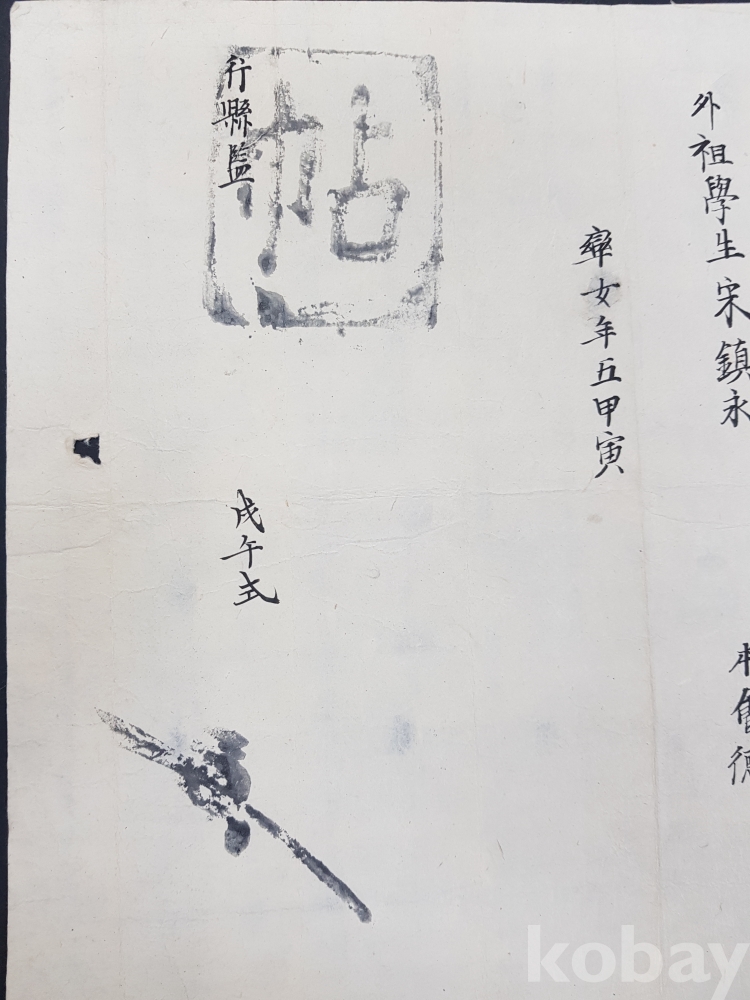 外祖學生宋鎮永
率女年五甲寅
行縣監
帖
戊午式
kobay